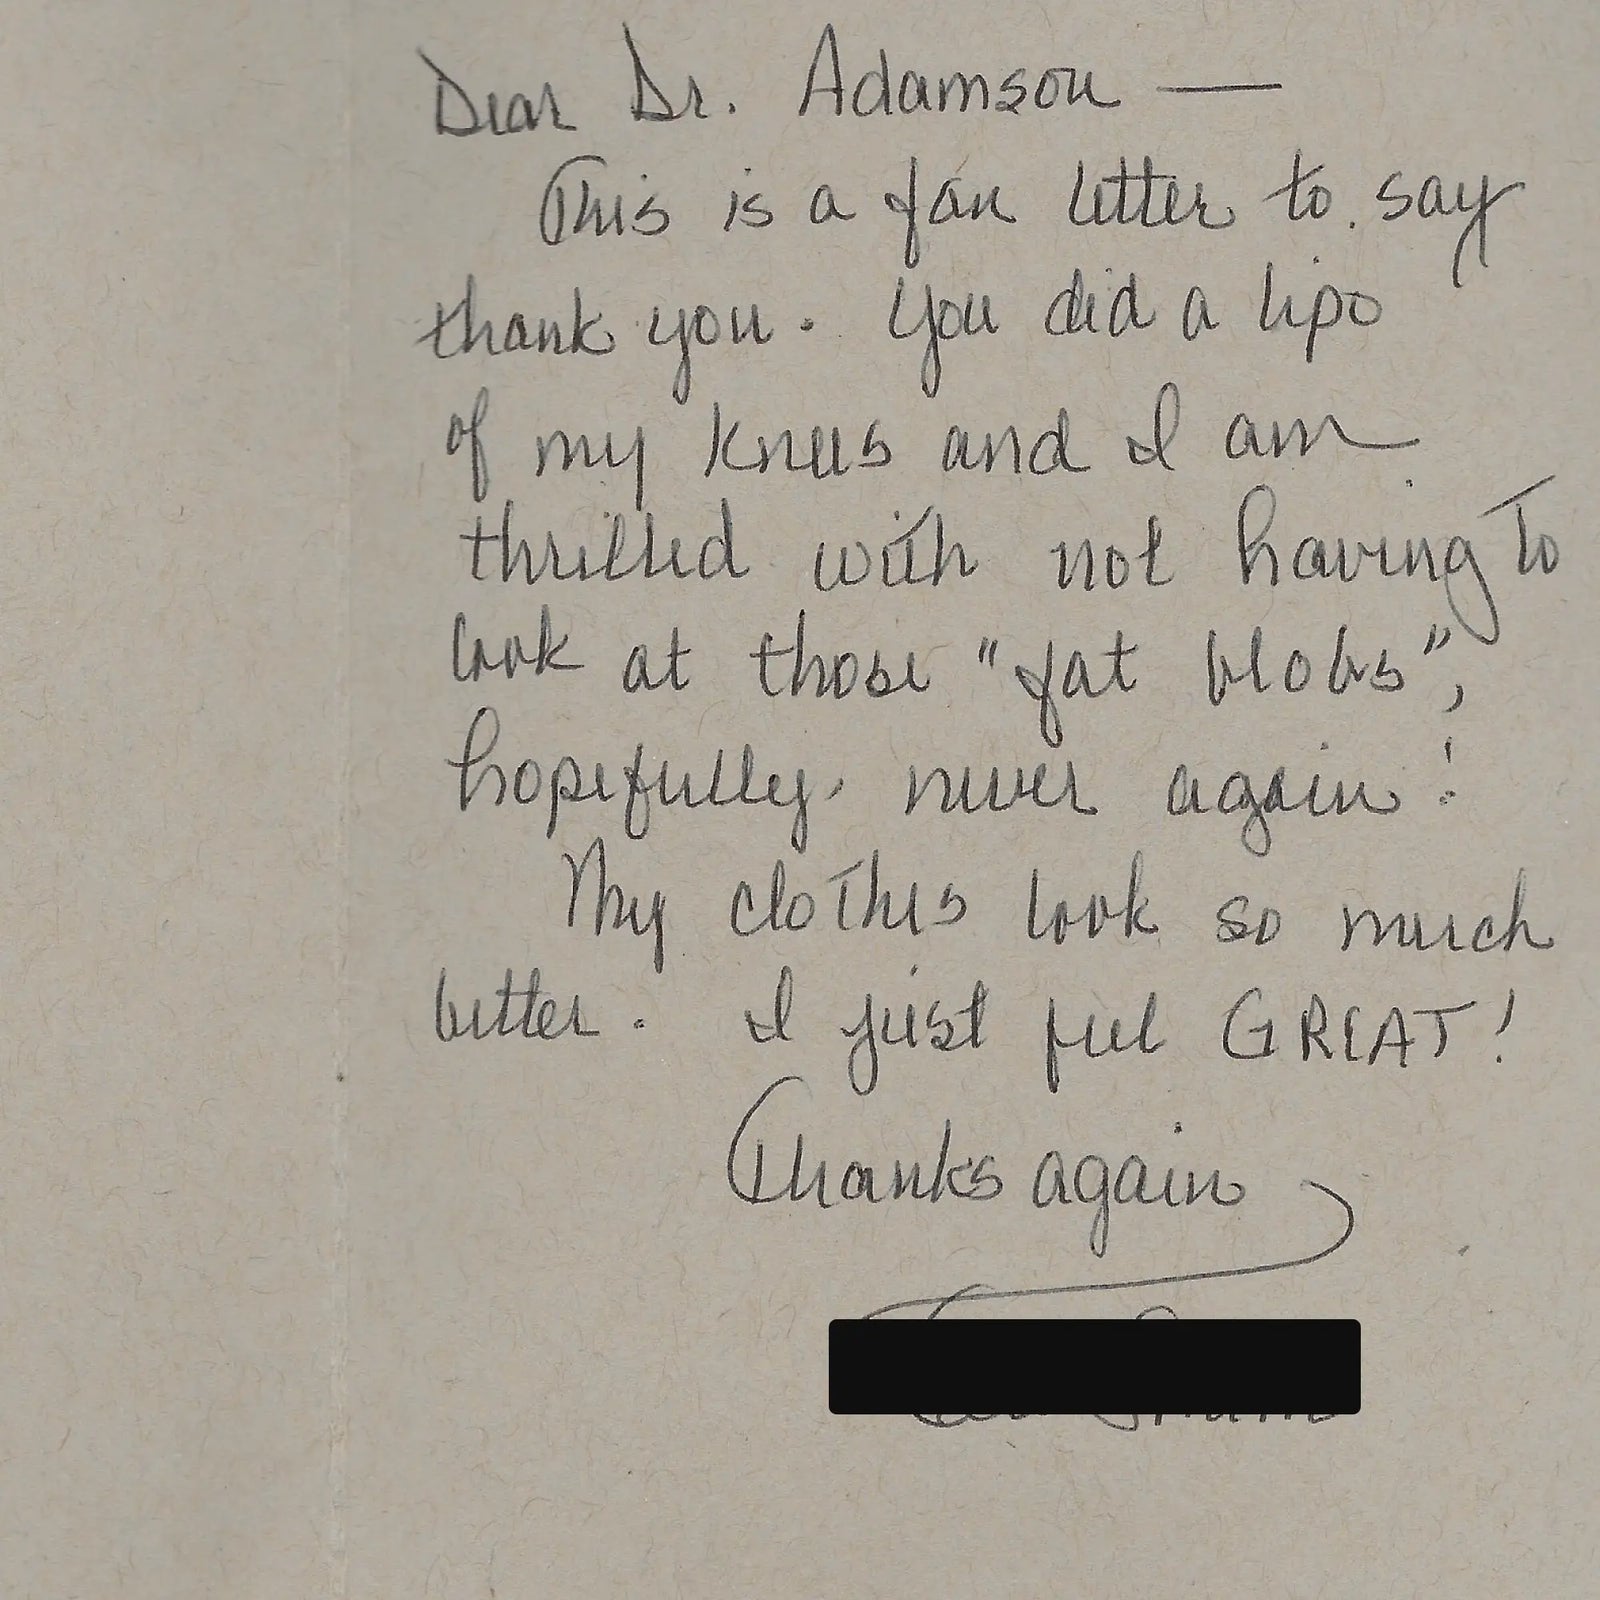 Dear Dr. Adamson —
This is a fan letter to say
thank you. You did a lipo
of my knees and I am
thrilled with not having to
look at those "fat blobs",
hopefully, never again!
My clothes look so much
better. I just feel GREAT!
Thanks again